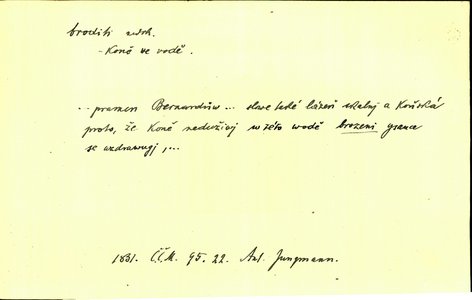 broditi nedok.
- Koně ve vodě.
.. pramen Bernardůw... slowe také lázeň skalnj a Koňská
proto, že Koně neduživj w této wodě brozeni gsauce
se uzdrawugj,...
1831. Č.Č.M. 95. 22. Ant. Jungmann.